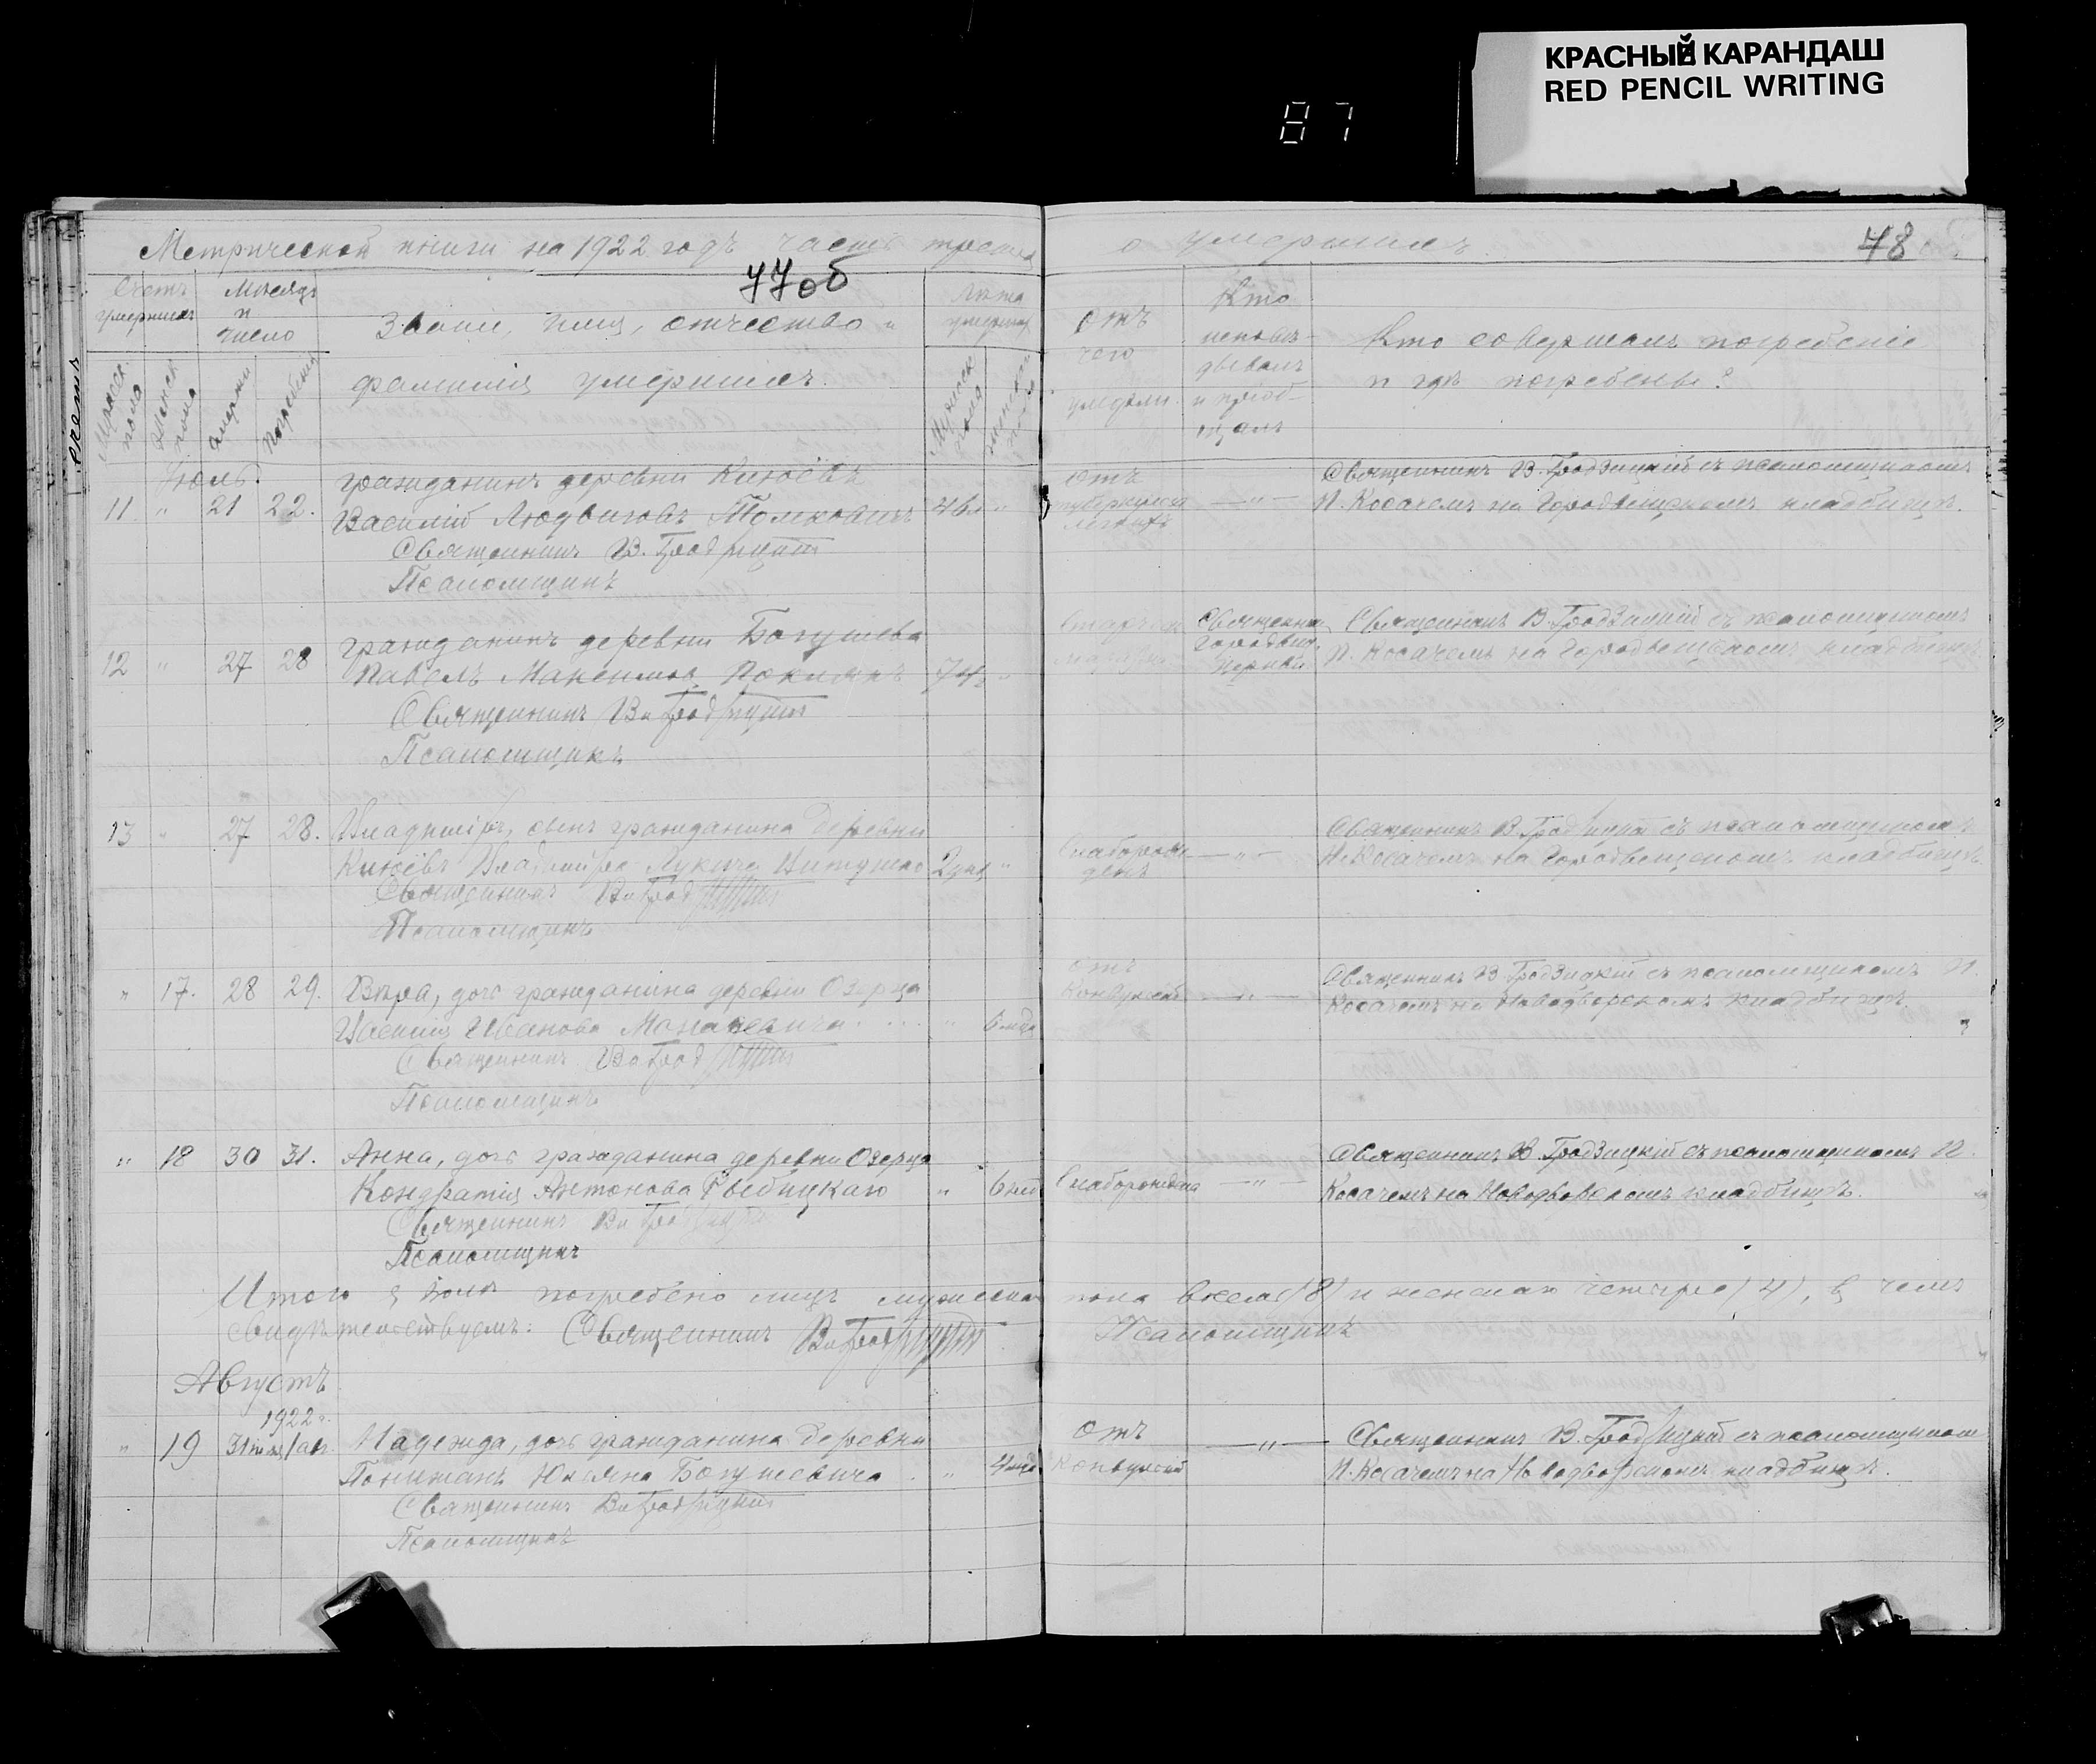 КРАСНЫЙ КАРАНДАШ
RED PENCIL WRITING
87
Метрической книги на 1922 годъ часть третья о умершихъ
48
77об
Счетъ умершихъ
Мѣсяцъ и число
Званіе, имя, отчество и фамилія умершихъ.
Лѣта умершаго
Мужеск. пола
Женск. пола
Смерти
Погребенія
Мужеск. пола
Женскаго
Отъ чего умерли.
Кто исповѣдывалъ и пріобщалъ
Кто совершалъ погребеніе и гдѣ погребены?
Іюль.
11 " 21 22.
гражданинъ деревни Княжевъ
Василій Людвиговъ Томковичъ
Священникъ В. Гродзицкій
Псаломщикъ
Отъ туберкулеза легкихъ
— " —
Священникъ В. Гродзицкій съ псаломщикомъ
П. Косачемъ на Городвещскомъ кладбищѣ.
12 " 27 28
гражданинъ деревни Богушева
Павелъ Максимовъ
Священникъ В. Гродзицкій
Псаломщикъ
Священникъ
Священникъ В. Гродзицкій съ псаломщикомъ
П. Косачемъ на Городвещскомъ кладбищѣ
13 " 27 28.
Владиміръ, сынъ гражданина деревни
Владиміра Лукича
Священникъ В. Гродзицкій
Псаломщикъ
Слаборожденъ
— " —
Священникъ В. Гродзицкій съ псаломщикомъ
П. Косачемъ на Городвещскомъ кладбищѣ.
" 17. 28 29.
Вѣра, дочь гражданина деревни Озерца
Василія Иванова " 6 мца
Священникъ В. Гродзицкій
Псаломщикъ
отъ
— " —
Священникъ В. Гродзицкій съ псаломщикомъ П.
Косачемъ на Новодворскомъ кладбищѣ.
" 18 30 31.
Анна, дочь гражданина деревни Озерца
Кондратія Антонова Рыбицкаго " 6
Священникъ В. Гродзицкій
Псаломщикъ
Слаборождена
— " —
Священникъ В. Гродзицкій съ псаломщикомъ П.
Косачемъ на Новодворскомъ кладбищѣ.
Итого въ іюлѣ погребено лицъ мужеска пола восемь (8) и женскаго четыре (4), въ чемъ
свидѣтельствуемъ: Священникъ В. Гродзицкій Псаломщикъ
Августъ
1922 г.
" 19
Надежда, дочь гражданина деревни
Богушевича " 4 мца
Священникъ В. Гродзицкій
Псаломщикъ
Отъ
— " —
Священникъ В. Гродзицкій съ псаломщикомъ
П. Косачемъ на Новодворскомъ кладбищѣ.